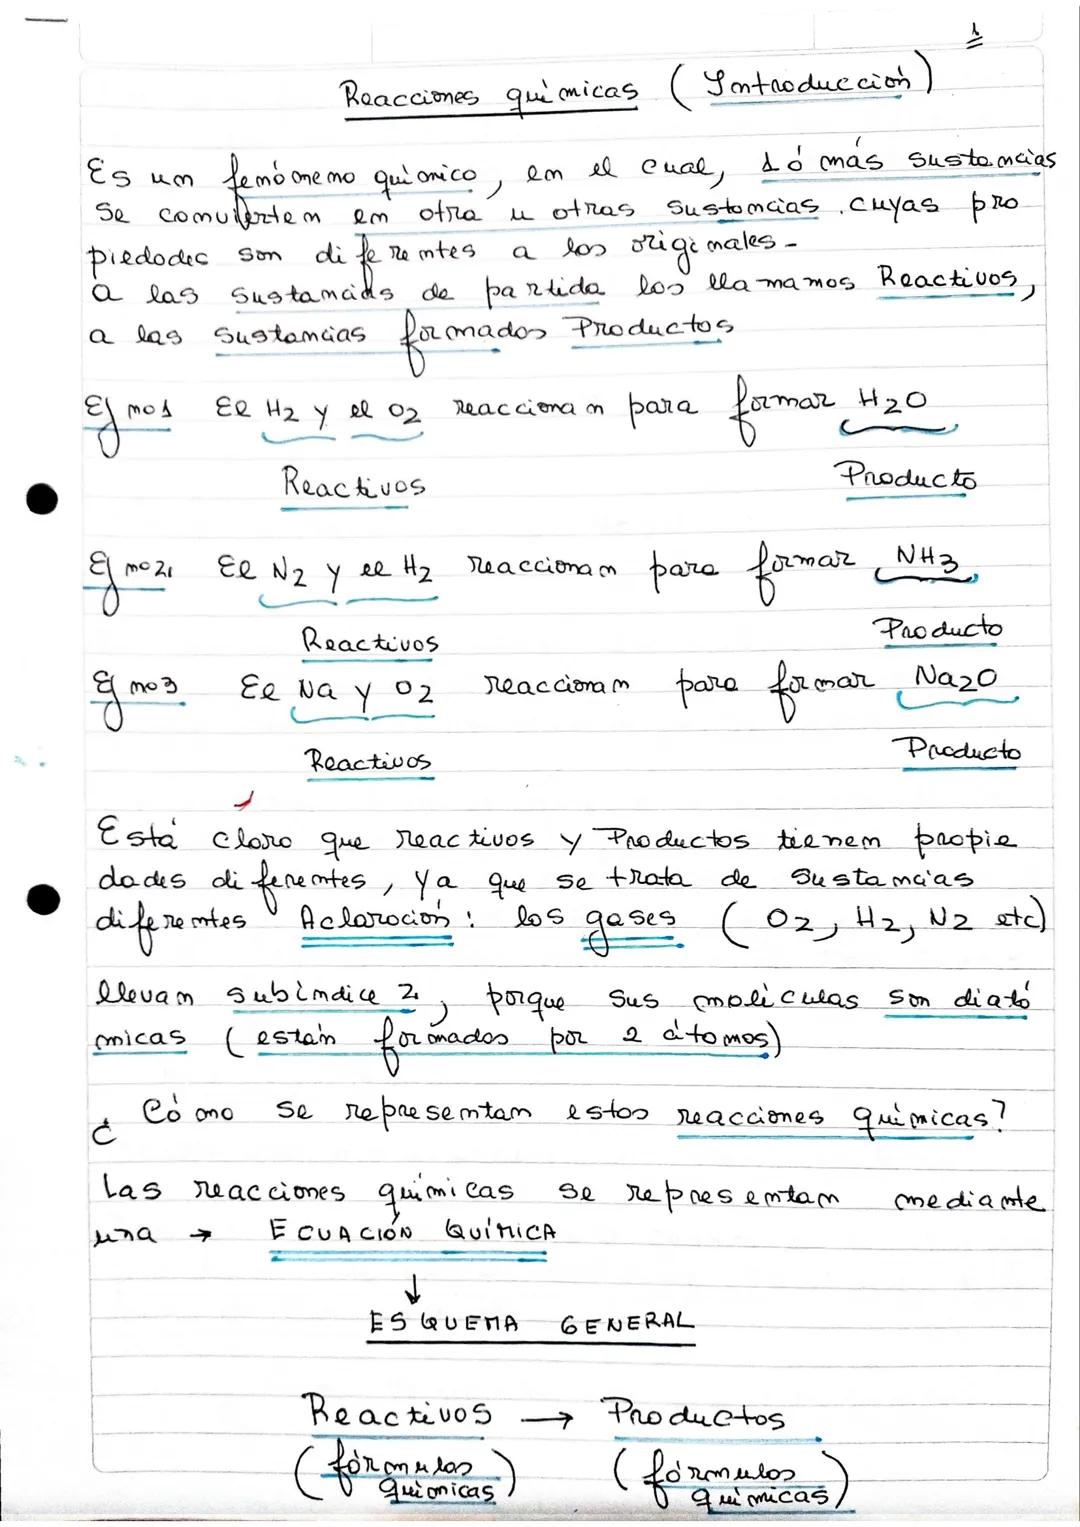 1
Reacciones químicas (Introducción)
Es un fenómeno químico, en el cual, 1 ó más sustancias
se convierten en otra u otras sustancias. cuyas pro
piedades son diferentes a las originales-
a las sustancias de partida las llamamos Reactivos,
a las sustancias formadas Productos
Ej no1 El H2 y el O2 reaccionan para formar H2O
Reactivos Producto
Ej no2 El N2 y el H2 reaccionan para formar NH3
Reactivos Producto
Ej no3 El Na y O2 reaccionan para formar Na2O
Reactivos Producto
Está claro que reactivos y Productos tienen propie
dades diferentes, ya que se trata de sustancias
diferentes Aclaración: los gases (O2, H2, N2 etc)
llevan subíndice 2, porque sus moléculas son diató
micas (están formadas por 2 átomos)
¿Cómo se representan estas reacciones químicas?
Las reacciones químicas se representan mediante
una → ECUACIÓN QUÍMICA
↓
ESQUEMA GENERAL
Reactivos → Productos
(fórmulas (fórmulas
químicas) químicas)